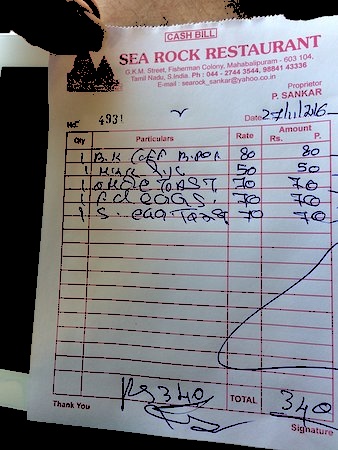 CASH BILL
SEA ROCK RESTAURANT
G.K.M. Street, Fisherman Colony, Mahabalipuram - 603 104,
Tamil Nadu, S.India. Ph : 044 - 2744 3544, 98841 43336
E-mail : searock_sankar@yahoo.co.in
Proprietor
P. SANKAR
No. 4931 Date 27/11/2016
Qty Particulars Rate Amount
Rs. P.
1 80 80
1 50 50
1 70 70
1 EGGS. 70 70
1 S. EGG 70 70
Rs 340 TOTAL 340
Thank You Signature